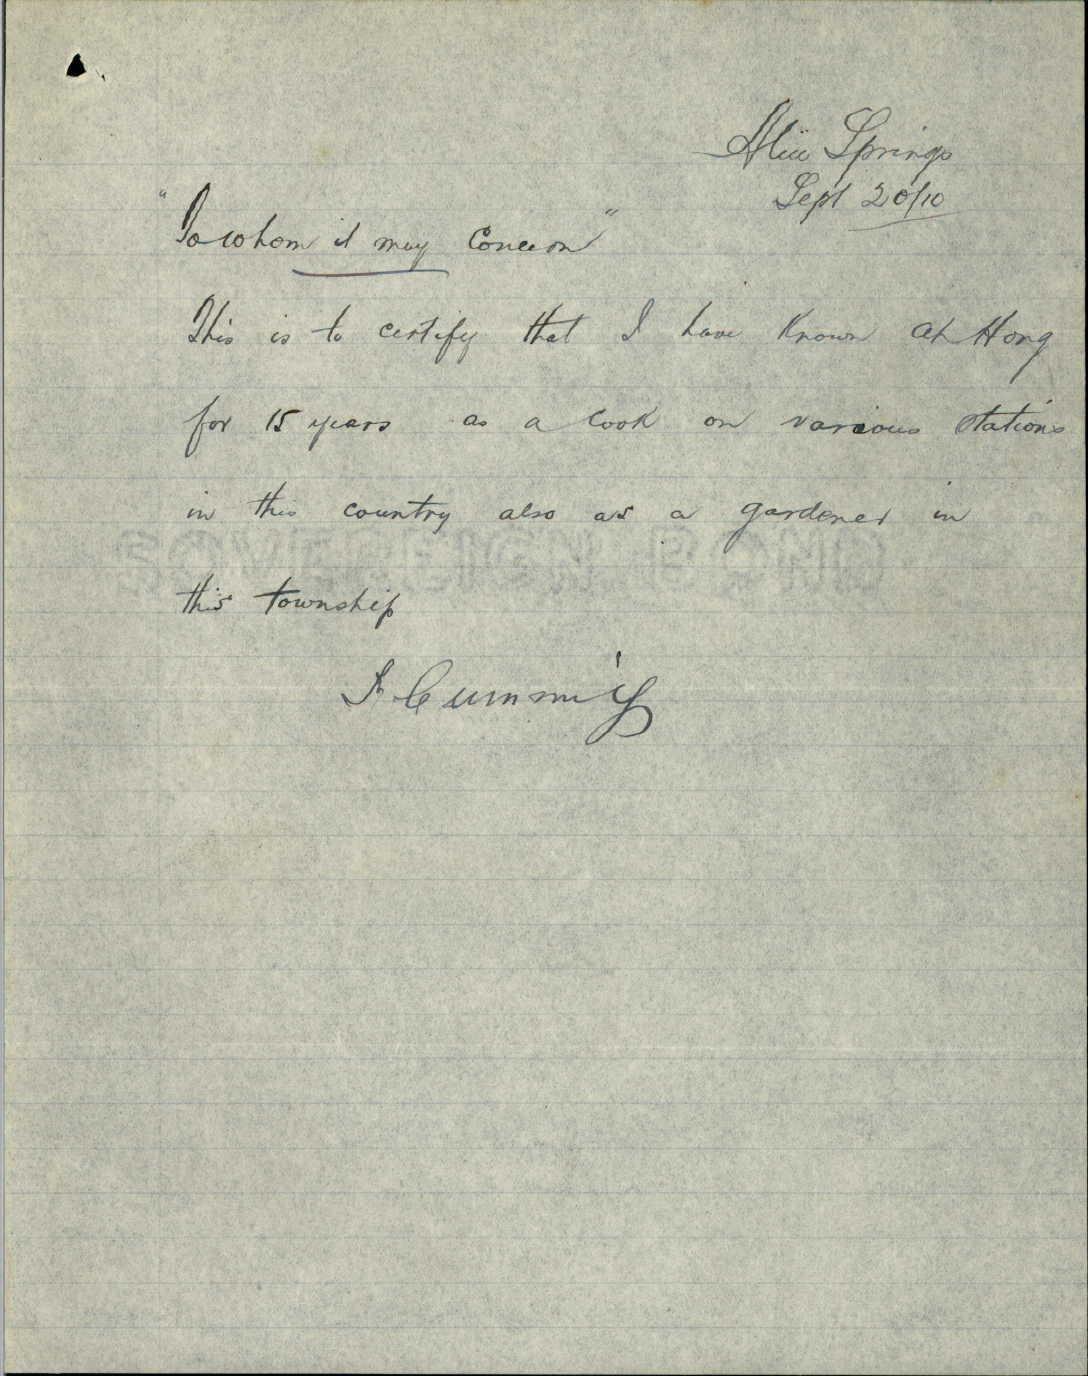 Alice Springs
Sept 20/10
"To whom it may Concern"
This is to certify that I have Known Ah Hong
for 15 years as a Cook on various stations
in this country also as a gardener in
this township